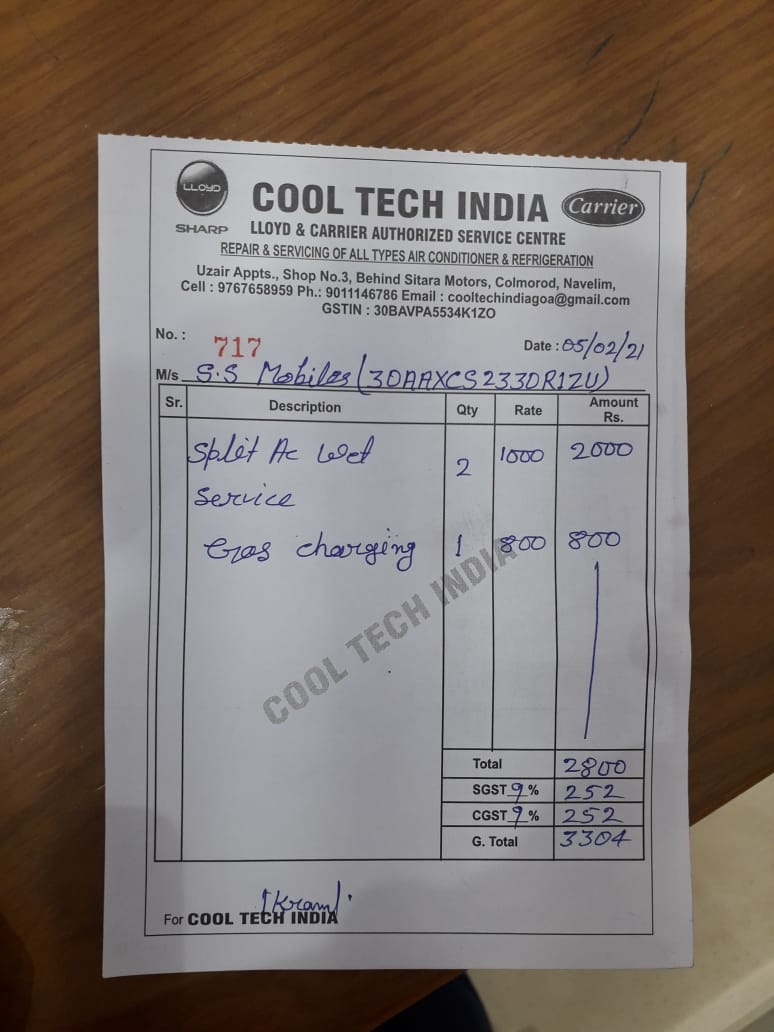 LLOYD
SHARP
COOL TECH INDIA
Carrier
LLOYD & CARRIER AUTHORIZED SERVICE CENTRE
REPAIR & SERVICING OF ALL TYPES AIR CONDITIONER & REFRIGERATION
Uzair Appts., Shop No.3, Behind Sitara Motors, Colmorod, Navelim,
Cell : 9767658959 Ph.: 9011146786 Email : cooltechindiagoa@gmail.com
GSTIN : 30BAVPA5534K1ZO
No. : 717 Date : 05/02/21
M/s S.S Mobiles (30AAXCS2330R1ZU)
Sr. Description Qty Rate Amount Rs.
Split Ac Wet 2 1000 2000
Service
Gas charging 1 800 800
COOL TECH INDIA
Total 2800
SGST 9 % 252
CGST 9 % 252
G. Total 3304
Ikram
For COOL TECH INDIA